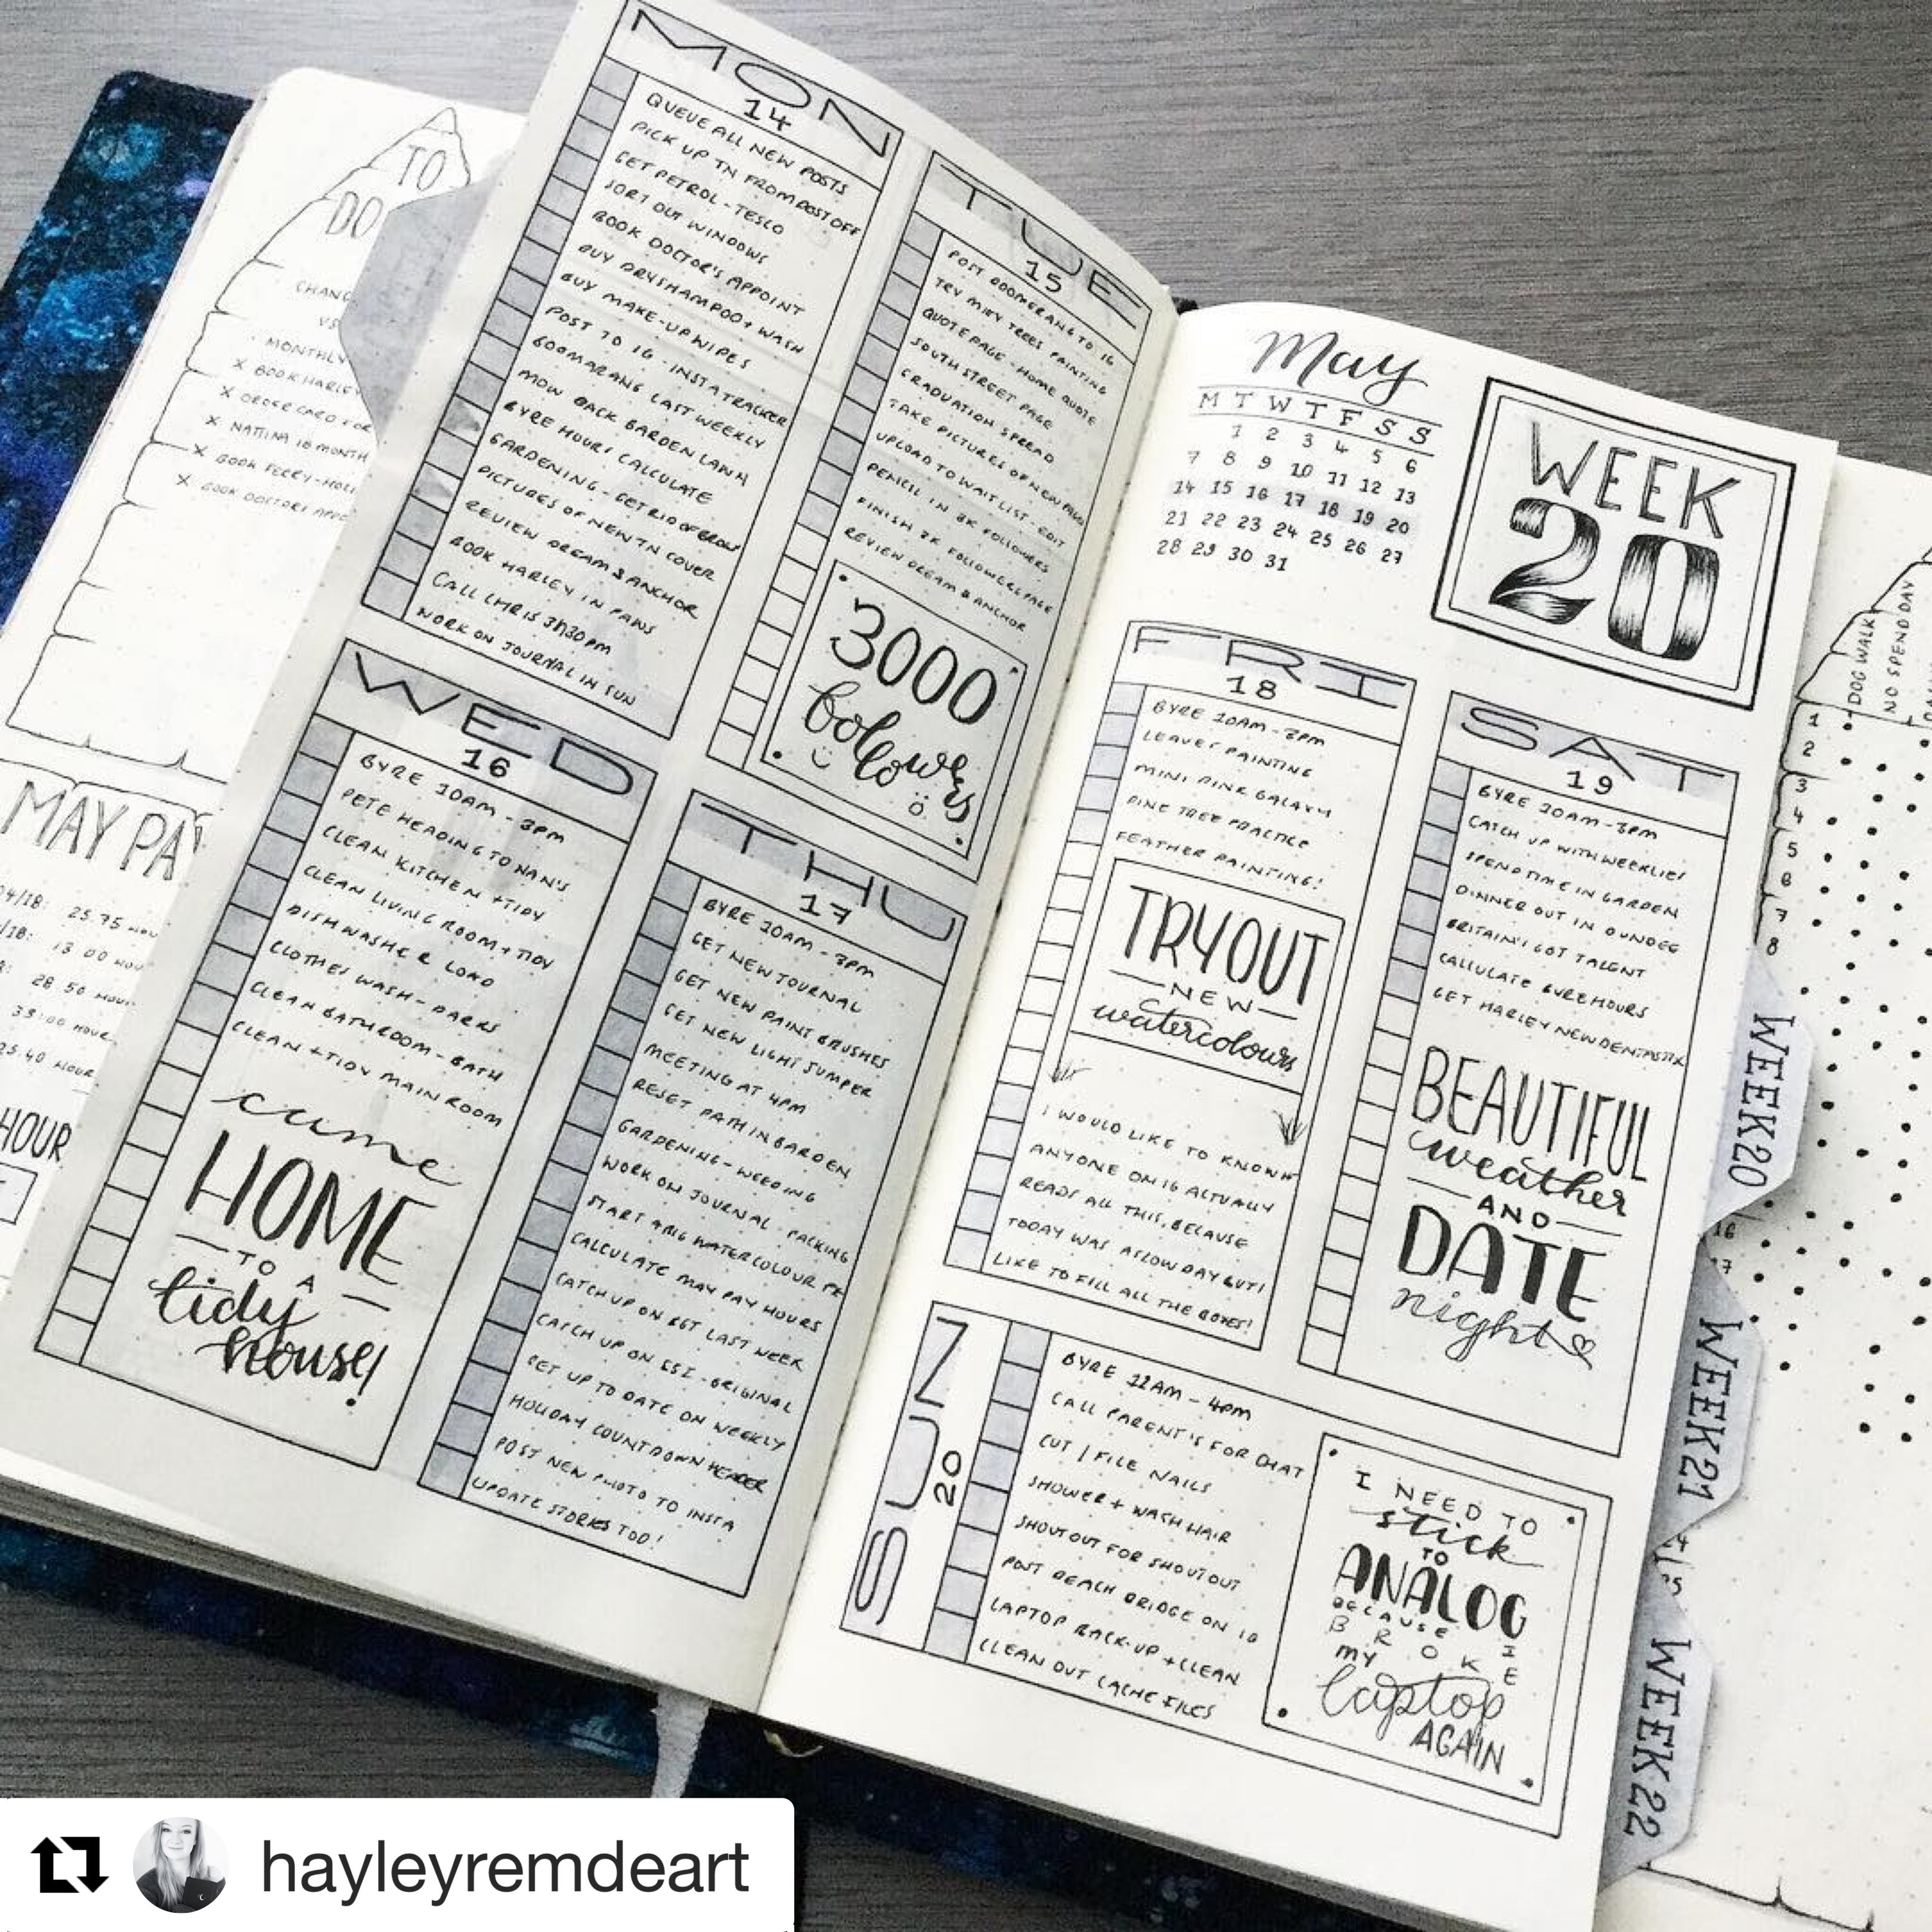 TO
DO
MONTHLY
X BOOK HARLEY
X ORDER CARD FOR
X NATTINA 18 MONTH
X BOOK FERRY - HOLI
X BOOK DOCTORS APPO
MAY PAY
04/18: 25.75 HOU
/18: 13 00 HOU
28 50 HOUR
33:00 HOUR
25.40 HOUR
HOUR
MON
14
QUEUE ALL NEW POSTS
PICK UP TN FROM POST OFF
GET PETROL - TESCO
SORT OUT WINDOWS
BOOK DOCTOR'S APPOINT
BUY DRYSHAMPOO + WASH
BUY MAKE-UP WIPES
POST TO IG - INSTA TRACKER
BOOMARANG LAST WEEKLY
MOW BACK GARDEN LAWN
BYRE HOURS CALCULATE
GARDENING - GET RID OF BROW
PICTURES OF NEW TN COVER
REVIEW DREAM & ANCHOR
BOOK HARLEY IN PAWS
CALL CHRIS 3:30PM
WORK ON JOURNAL IN SUN
TUE
15
POST BOOMERANG TO IG
TRY MIXY TREES PAINTING
QUOTE PAGE - HOME QUOTE
SOUTH STREET PAGE
GRADUATION SPREAD
TAKE PICTURES OF NEW PAGES
UPLOAD TO WAIT LIST - EDIT
PENCIL IN 3K FOLLOWERS
FINISH 3K FOLLOWERS PAGE
REVIEW DREAM & ANCHOR
3000
followers
WED
16
BYRE 10AM - 3PM
PETE HEADING TO NAN'S
CLEAN KITCHEN + TIDY
CLEAN LIVING ROOM + TIDY
DISHWASHER LOAD
CLOTHES WASH - DARKS
CLEAN BATHROOM - BATH
CLEAN + TIDY MAIN ROOM
came
HOME
TO A
tidy
house!
THU
17
BYRE 10AM - 3PM
GET NEW JOURNAL
GET NEW PAINT BRUSHES
GET NEW LIGHT JUMPER
MEETING AT 4PM
RESET PATH IN GARDEN
GARDENING - WEEDING
WORK ON JOURNAL - PACKING
START 4MG WATERCOLOUR
CALCULATE MAY PAY HOURS
CATCH UP ON BGT LAST WEEK
CATCH UP ON CSI - ORIGINAL
GET UP TO DATE ON WEEKLY
HOLIDAY COUNTDOWN HEADER
POST NEW PHOTO TO INSTA
UPDATE STORIES TOO!
May
M T W T F S S
1 2 3 4 5 6
7 8 9 10 11 12 13
14 15 16 17 18 19 20
21 22 23 24 25 26 27
28 29 30 31
WEEK
20
FRI
18
BYRE 10AM - 3PM
LEAVES PAINTING
MINI PINK GALAXY
PINE TREE PRACTICE
FEATHER PAINTING!
TRYOUT
NEW
watercolours
I WOULD LIKE TO KNOW IF
ANYONE ON IG ACTUALLY
READS ALL THIS, BECAUSE
TODAY WAS A SLOW DAY BUT I
LIKE TO FILL ALL THE BOXES!
SAT
19
BYRE 10AM - 3PM
CATCH UP WITH WEEKLIES
SPEND TIME IN GARDEN
DINNER OUT IN DUNDEE
BRITAIN'S GOT TALENT
CALCULATE BYRE HOURS
GET HARLEY NEW DENTASTIX
BEAUTIFUL
weather
AND
DATE
night
SUN
20
BYRE 11AM - 4PM
CALL PARENT'S FOR CHAT
CUT / FILE NAILS
SHOWER + WASH HAIR
SHOUTOUT FOR SHOUTOUT
POST BEACH BRIDGE ON IG
LAPTOP BACK-UP + CLEAN
CLEAN OUT CACHE FILES
I NEED TO
stick
TO
ANALOG
BECAUSE I
BROKE
my
laptop
AGAIN
DOG WALK
NO SPEND DAY
1
2
3
4
5
6
7
8
16
17
WEEK20
WEEK21
WEEK22
hayleyremdeart